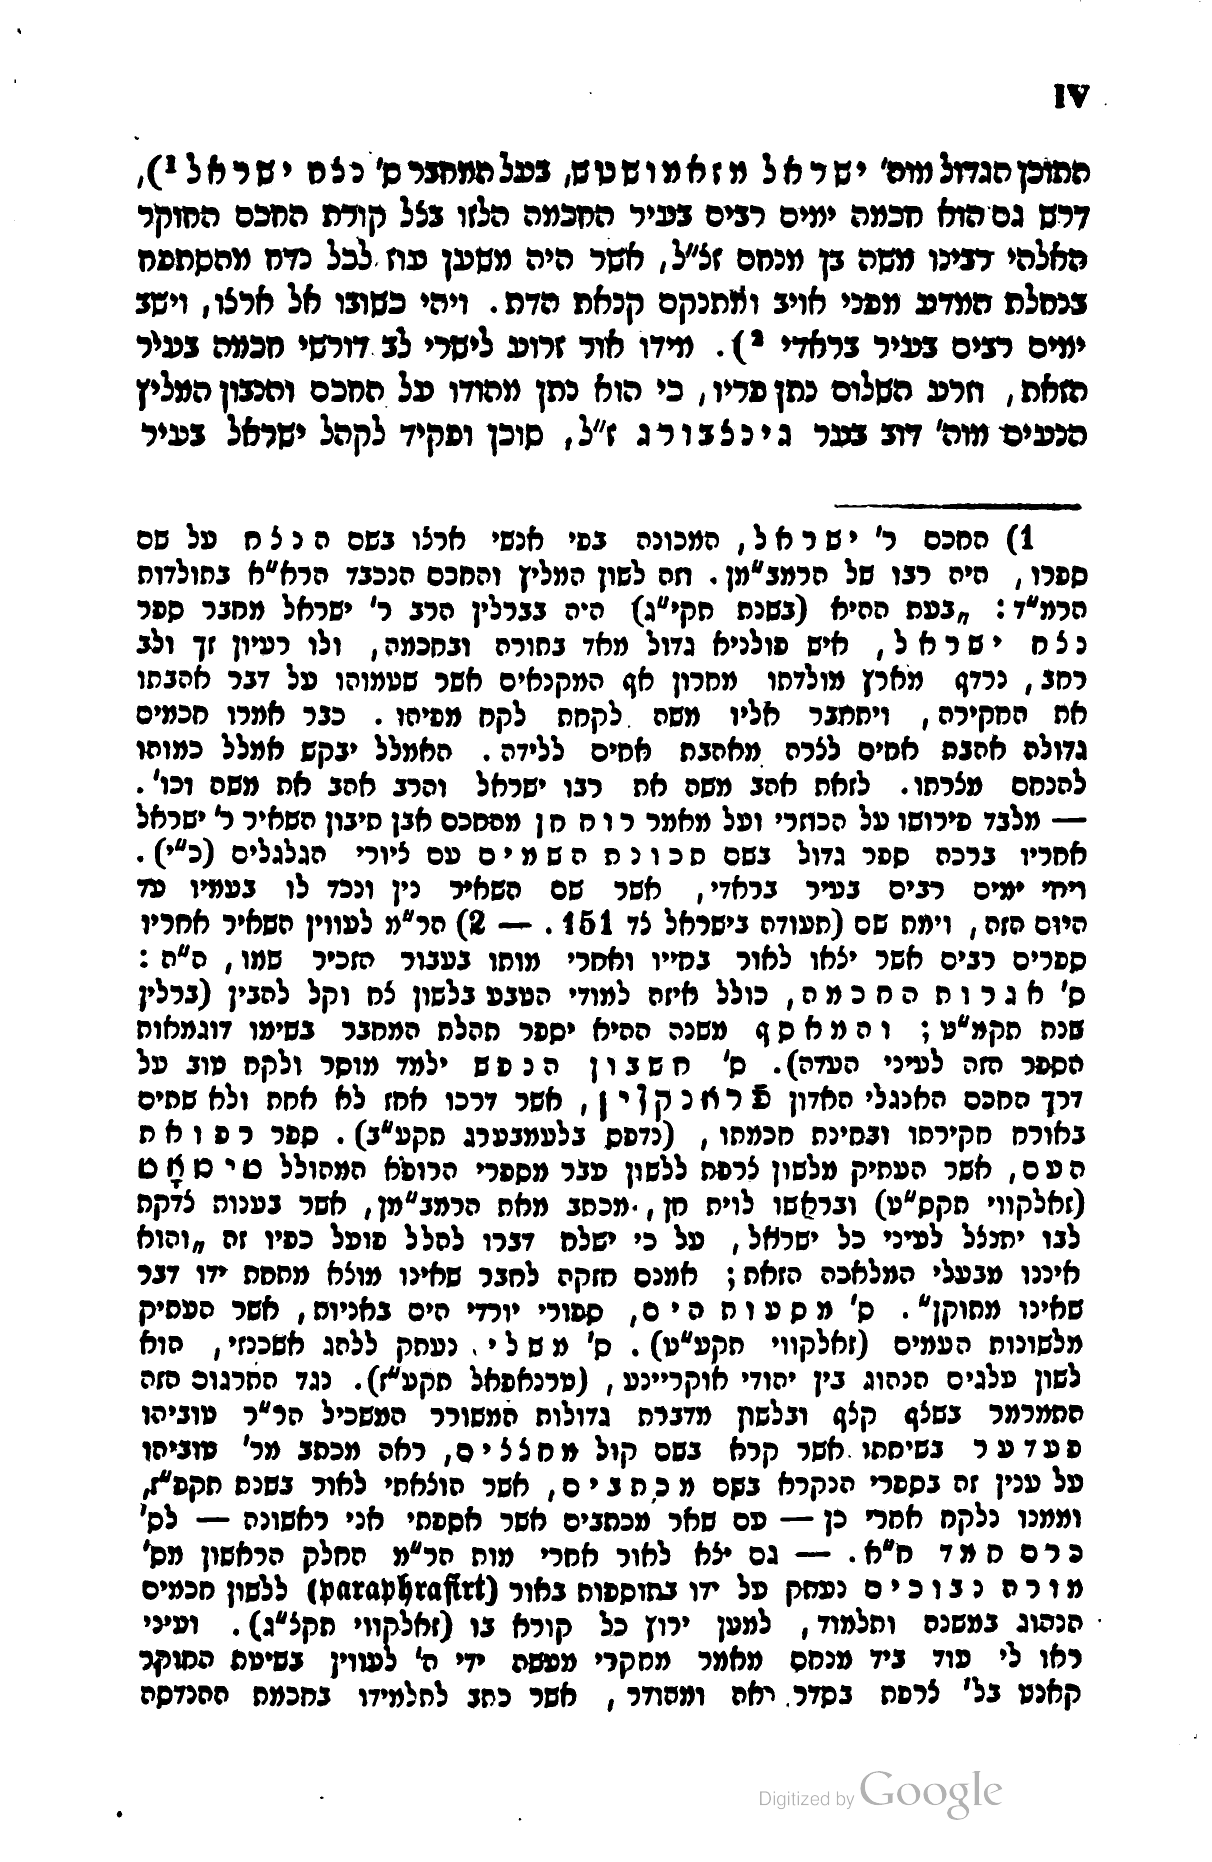 IV
התוכן הגדול מוה' ישראל מזאמושטש, בעל המחבר ס' נצח ישראל ¹),
דרש גם הוא חכמה ימים רבים בעיר החכמה הלזו בצל קורת החכם החוקר
האלהי רבינו משה בן מנחם זצ"ל, אשר היה משען עוז לכל נדח מהסתפח
בנחלת המדע מפני אויב ומתנקם קנאת הדת. ויהי בשובו אל ארצו, וישב
ימים רבים בעיר בראדי ²). מידו אור זרוע לישרי לב דורשי חכמה בעיר
הזאת, וזרע השלום נתן פריו, כי הוא נתן מהודו על החכם והנבון המליץ
הנעים מוה' דוב בער גינצבורג ז"ל, סוכן ופקיד לקהל ישראל בעיר
1) החכם ר' ישראל, המכונה בפי אנשי ארצו בשם הנצח על שם
ספרו, היה רבו של הרמב"מן. וזה לשון המליץ והחכם הנכבד הרא"א בתולדות
הרמ"ד: „בעת ההיא (בשנת תקי"ג) היה בברלין הרב ר' ישראל מחבר ספר
נצח ישראל, איש פולניא גדול מאד בתורה ובחכמה, ולו רעיון זך ולב
רחב, נרדף מארץ מולדתו מחרון אף המקנאים אשר שטמוהו על דבר אהבתו
את החקירה, ויתחבר אליו משה לקחת לקח מפיהו. כבר אמרו חכמים
גדולה אהבת אחים לצרה מאהבת אחים ללידה. האמלל יבקש אמלל כמוהו
להנחם מצרתו. לזאת אהב משה את רבו ישראל והרב אהב את משה וכו'.
— מלבד פירושו על הכוזרי ועל מאמר רוח חן מהחכם אבן תיבון השאיר ר' ישראל
אחריו ברכה ספר גדול בשם תכונת השמים עם ציורי הגלגלים (כ"י).
ויחי ימים רבים בעיר בראדי, אשר שם השאיר נין ונכד לו בעמיו עד
היום הזה, וימת שם (תעודה בישראל צד 151. — 2) הר"מ לעווין השאיר אחריו
ספרים רבים אשר יצאו לאור בחייו ואחרי מותו בעבור הזכיר שמו, ה"ה:
ס' אגרות החכמה, כולל איזה למודי הטבע בלשון צח וקל להבין (ברלין
שנת תקמ"ט; והמאסף משנה ההיא יספר תהלת המחבר בשימו דוגמאות
הספר הזה לעיני העדה). ס' חשבון הנפש ילמד מוסר ולקח טוב על
דרך החכם האנגלי האדון פראנקלין, אשר דרכו אחז לא אחת ולא שתים
באורח חקירתו ובחינת חכמתו, (נדפס בלעמבערג תקע"ב). ספר רפואת
העם, אשר העתיק מלשון צרפת ללשון עבר מספרי הרופא המהולל טיסאָט
(זאלקווי תקס"ט) ובראשו לוית חן, מכתב מאת הרמב"מן, אשר בענות צדקת
לבו יתנצל לעיני כל ישראל, על כי ישלח דברו להלל פועל כפיו זה „והוא
איננו מבעלי המלאכה הזאת; אמנם חזקה לחבר שאינו מוצא מתחת ידו דבר
שאינו מתוקן". ס' מסעות הים, ספורי יורדי הים באניות, אשר העתיק
מלשונות העמים (זאלקווי תקע"ט). ס' משלי נעתק ללהג אשכנזי, הוא
לשון עלגים הנהוג בין יהודי אוקריינע, (טרנאפאל תקע"ז). נגד התרגום הזה
התמרמר בשצף קצף ובלשון מדברת גדולות המשורר המשכיל הר"ר טוביהו
פעדער בשיחתו אשר קרא בשם קול מחצצים, ראה מכתב מר' טוביהו
על ענין זה בספרי הנקרא בשם מכתבים, אשר הוצאתי לאור בשנת תקפ"ז,
וממנו נלקח אחרי כן — עם שאר מכתבים אשר אספתי אני ראשונה — לס'
כרם חמד ח"א. — גם יצא לאור אחרי מות הר"מ החלק הראשון מס'
מורה נבוכים נעתק על ידו בתוספות באור (paraphrasirt) ללשון חכמים
הנהוג במשנה ותלמוד, למען ירוץ כל קורא בו (זאלקווי תקצ"ג). ועיני
ראו לי עוד ביד מנחם מאמר מחקרי מעשה ידי ה' לעווין בשיטת החוקר
קאנט בל' צרפת בסדר יאה ומהודר, אשר כתב לתלמידו בחכמת ההנדסה
Digitized by Google